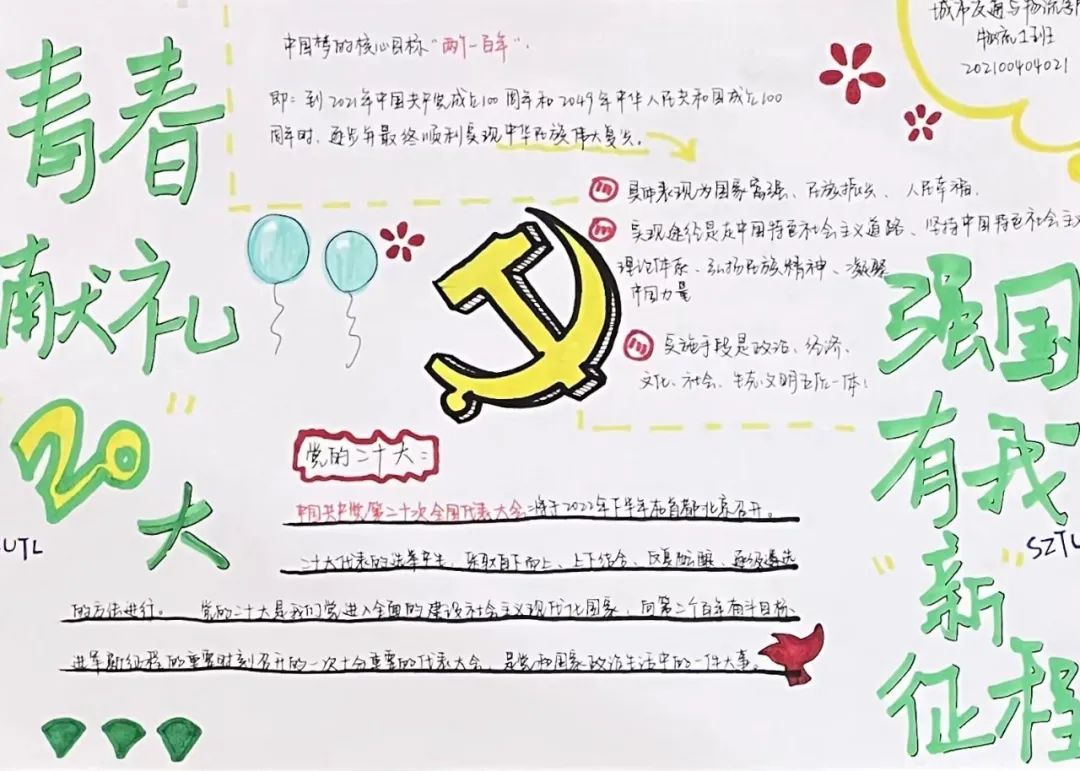 青春
献礼
"20"
大
SUTL
中国梦的核心目标"两个一百年".
即：到2021年中国共产党成立100周年和2049年中华人民共和国成立100
周年时、逐步并最终顺利实现中华民族伟大复兴。
具体表现为国家富强、民族振兴、人民幸福.
实现途径是走中国特色社会主义道路、坚持中国特色社会主义
理论体系、弘扬民族精神、凝聚
中国力量
实施手段是政治、经济、
文化、社会、生态文明五位一体
党的二十大：
中国共产党第二十次全国代表大会将于2022年下半年在首都北京召开。
二十大代表的选举产生，采取自下而上、上下结合、反复酝酿、逐级遴选
的方法进行。 党的二十大是我们党进入全面的建设社会主义现代化国家、向第二个百年奋斗目标
进军新征程的重要时刻召开的一次十分重要的代表大会、是党和国家政治生活中的一件大事。
城市交通与物流学院
物流1班
202100404021
强国
有我
SZTL
"新"
征程